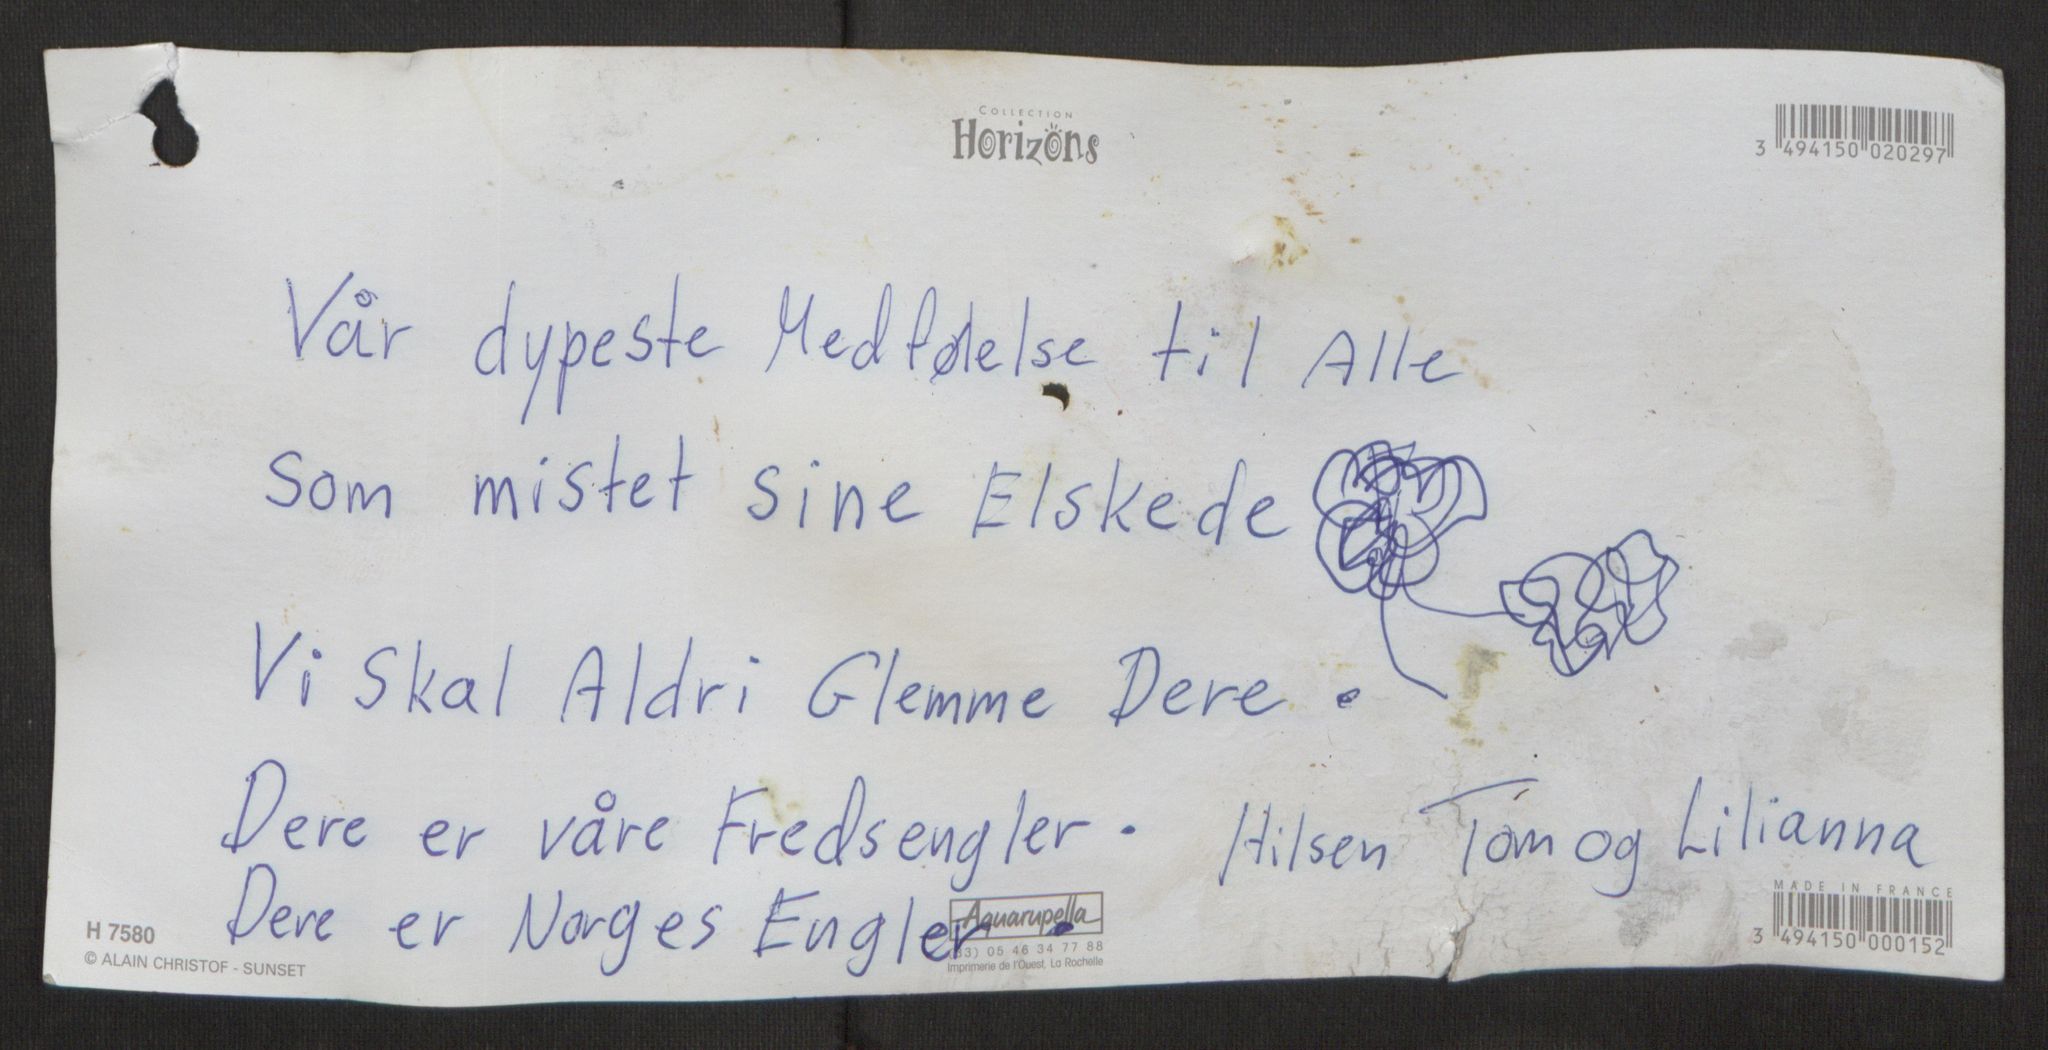 COLLECTION
Horizons
3 494150 020297
Vår dypeste Medfølelse til Alle
Som mistet sine Elskede
Vi Skal Aldri Glemme Dere.
Dere er våre Fredsengler. Hilsen Tom og Lilianna
Dere er Norges Engler.
H 7580
© ALAIN CHRISTOF - SUNSET
Aquarupella
(33) 05 46 34 77 88
Imprimerie de l'Ouest, La Rochelle
MADE IN FRANCE
3 494150 000152